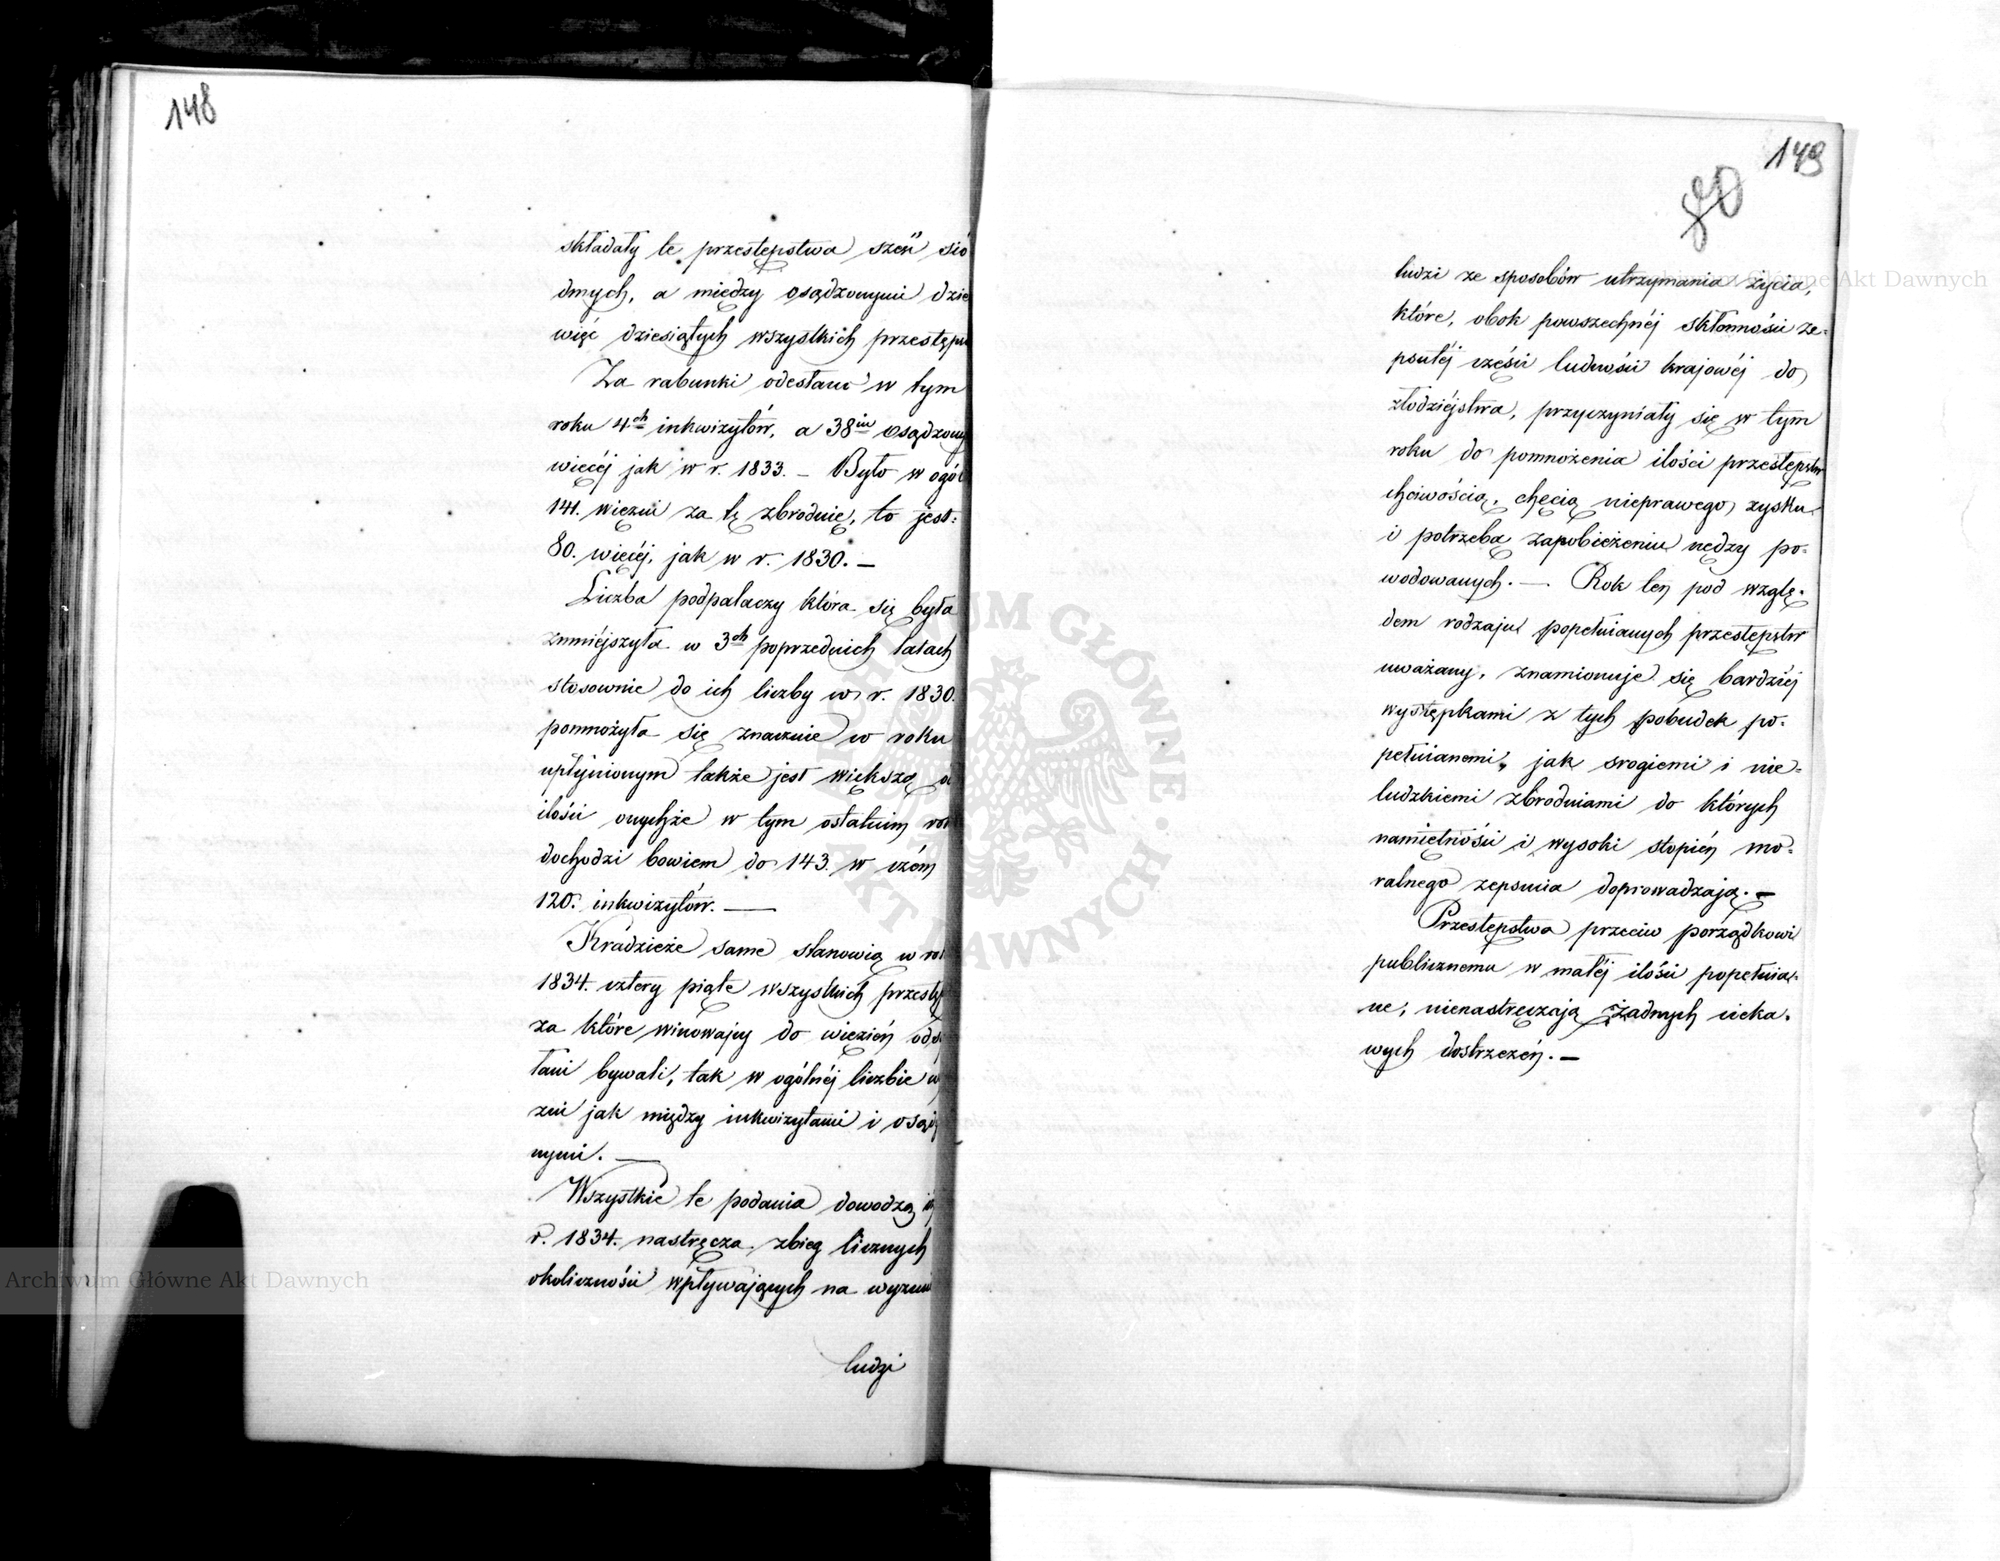 148
składały te przestępstwa sześć sió
dmych, a między osądzonymi dzie
więć dziesiątych wszystkich przestęps
Za rabunki odesłano w tym
roku 4ch inkwizytów, a 38iu osądzony
więcéj jak w r. 1833. – Było w ogól
141. więźni za tę zbrodnię, to jest:
80. więcéj, jak w r. 1830. –
Liczba podpalaczy która się była
zmniéjszyła w 3ch poprzednich latach
stosownie do ich liczby w r. 1830.
pomnożyła się znacznie w roku
upłynionym także jest większą o
ilości onychże w tym ostatnim rok
dochodzi bowiem do 143. w czém
120. inkwizytów. —
Kradzieże same stanowią w rok
1834. cztery piąte wszystkich przestęp
za które winowajcy do więzień ode
łani bywali, tak w ogólnéj liczbie w
źni jak między inkwizytami i osądz
nymi. —
Wszystkie te podania dowodzą iż
r. 1834. nastręcza zbieg licznych
okoliczności wpływających na wyzuci
ludzi
149
80
ludzi ze sposobów utrzymania życia,
które, obok powszechnéj skłonności ze-
psutéj części ludności krajowéj do
złodziéjstwa, przyczyniały się w tym
roku do pomnożenia ilości przestępstw
chciwością, chęcią nieprawego zysku
i potrzebą zapobieżeniu nędzy po-
wodowanych. — Rok ten pod wzglę-
dem rodzaju popełnianych przestępstw
uważany, znamionuje się bardziéj
występkami z tych pobudek po-
pełnianemi, jak srogiemi i nie-
ludzkiemi zbrodniami do których
namiętności i wysoki stopień mo-
ralnego zepsucia doprowadzają. –
Przestępstwa przeciw porządkowi
publicznemu w małéj ilości popełnia-
ne, nienastręczają żadnych cieka-
wych dostrzeżeń. –
Archiwum Główne Akt Dawnych
Archiwum Główne Akt Dawnych
ARCHIWUM GŁÓWNE AKT DAWNYCH